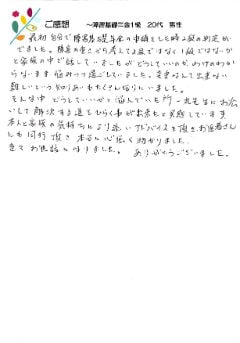 ご感想 ～障害基礎年金1級 20代 男性
最初自分で障害基礎年金の申請をした時2級の判定が
でました。障害の重さから考えて2級ではなく1級ではないか
と家族の中で話していましたがどうしていいのか、わけのわか
らないまま悩みつつ過ごしていました。変更なんて出来ない
難しいという知りあいもたくさん居りました。
そんな中どうしていいかと悩んでいた所
して解決する道もひらく事が出来たと実感しています
本人と家族の気持ちにより添いアドバイスを頂き、お医者さん
にも同行頂き本当に心強く助かりました。
お世話になりました。ありがとうございました。